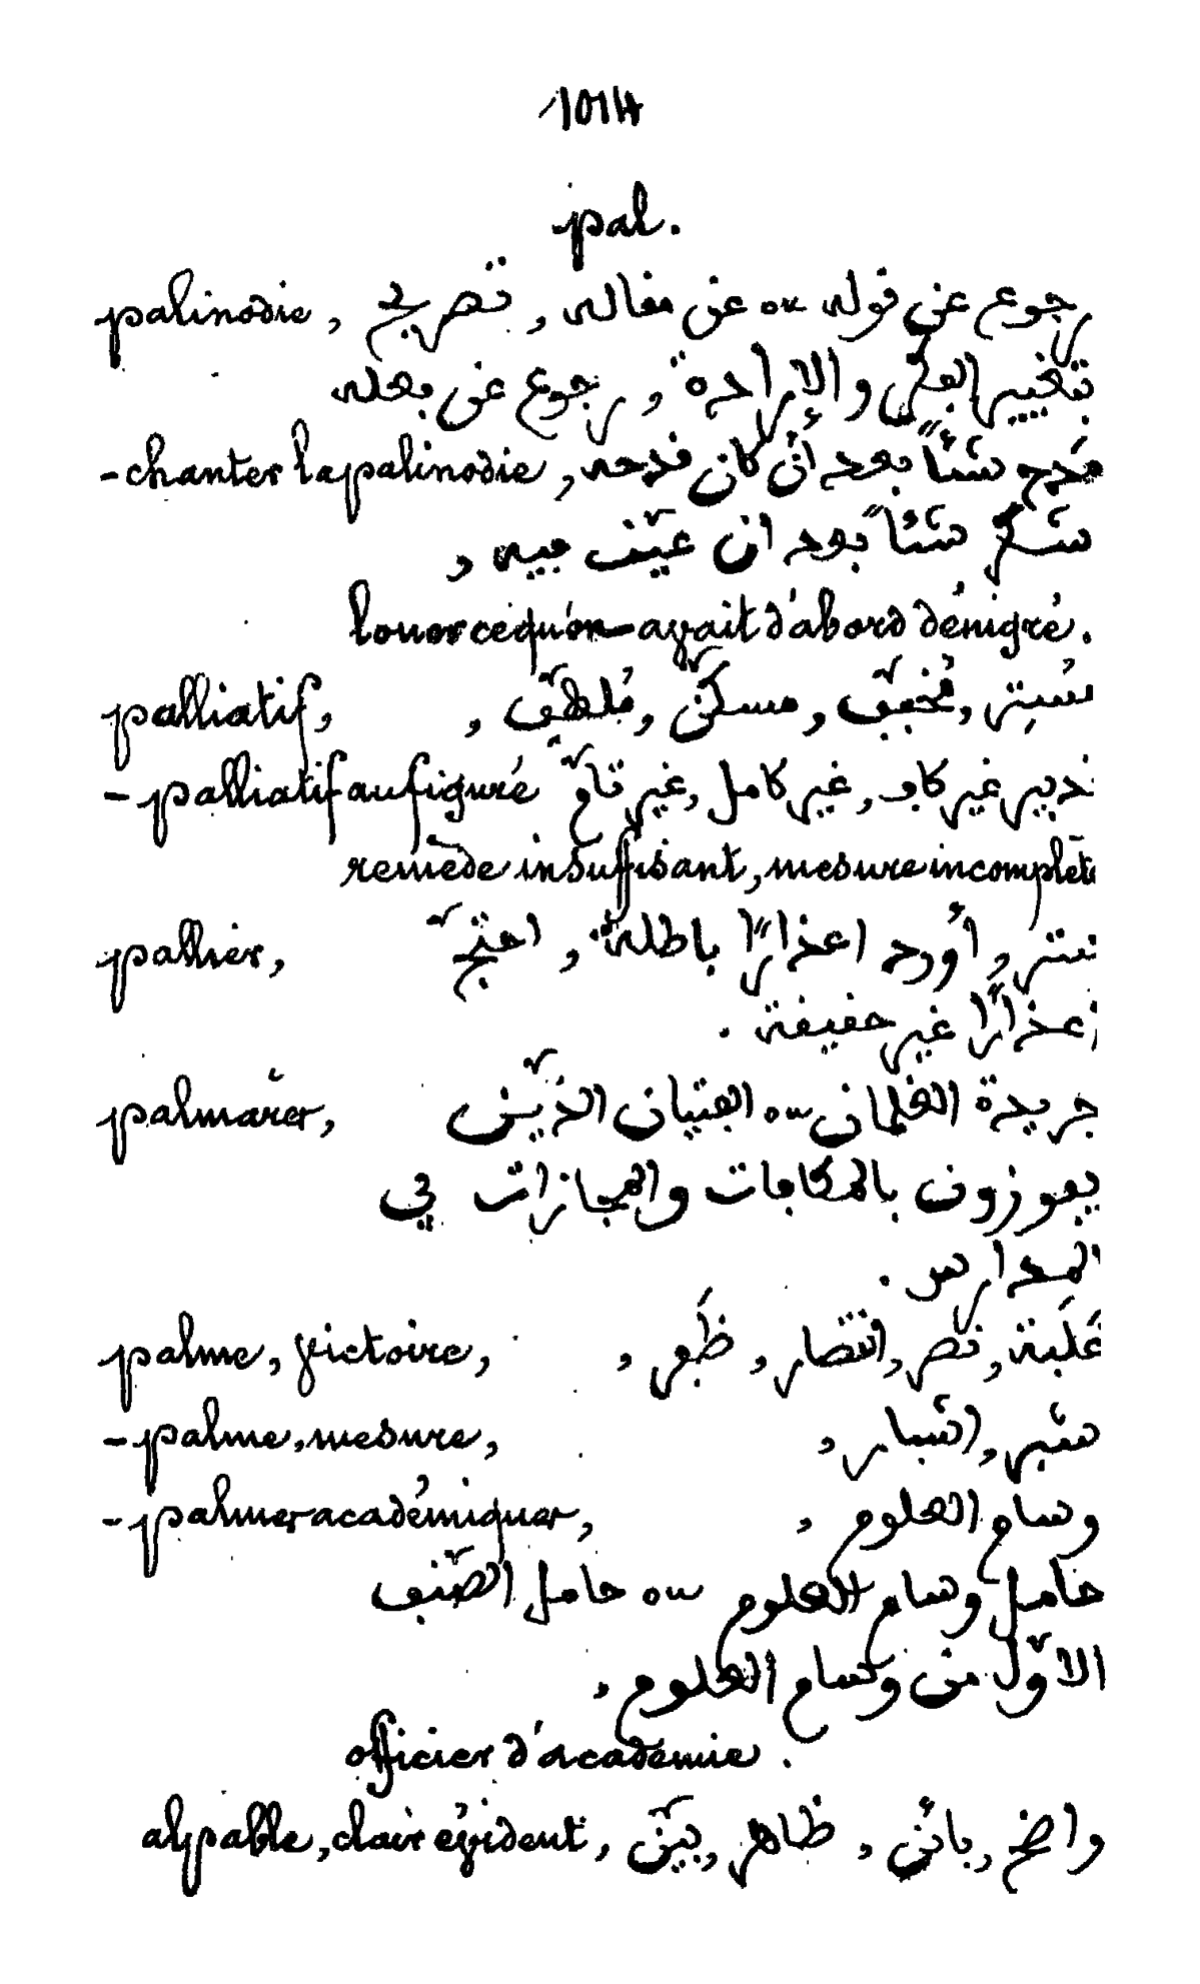 1014
pal.
palinodie, رجوع عن قوله ou عن مقاله, تصريح
بتغيير الفكر والإرادة, رجوع عن فعله
- chanter la palinodie, مَدح شئاً بعد أن كان قدحه
شكر شئاً بعد ان عيّف فيه,
louer ce qu'on avait d'abord dénigré.
palliatif, مُستِر, مُخفّف, مسكّن, مُلطّف,
- palliatif au figuré تدبير غير كاف, غير كامل, غير تامّ
remède insuffisant, mesure incomplète
pallier, ستر, أورد اعذارًا باطلة, احتجّ
اعذارًا غير حقيقة.
palmarès, جريدة الغلمان ou الفتيان الذّين
يفوزون بالمكافات والمجازات في
المدارس.
palme, victoire, غَلَبة, نصر, انتصار, ظَفر,
- palme, mesure, شبر, اشبار,
- palmes académiques, وسام العلوم,
حامل وسام العلوم ou حامل الصّنف
الاوّل من وسام العلوم,
officier d'académie.
alpable, clair évident, واضح, بائن, ظاهر, بيّن